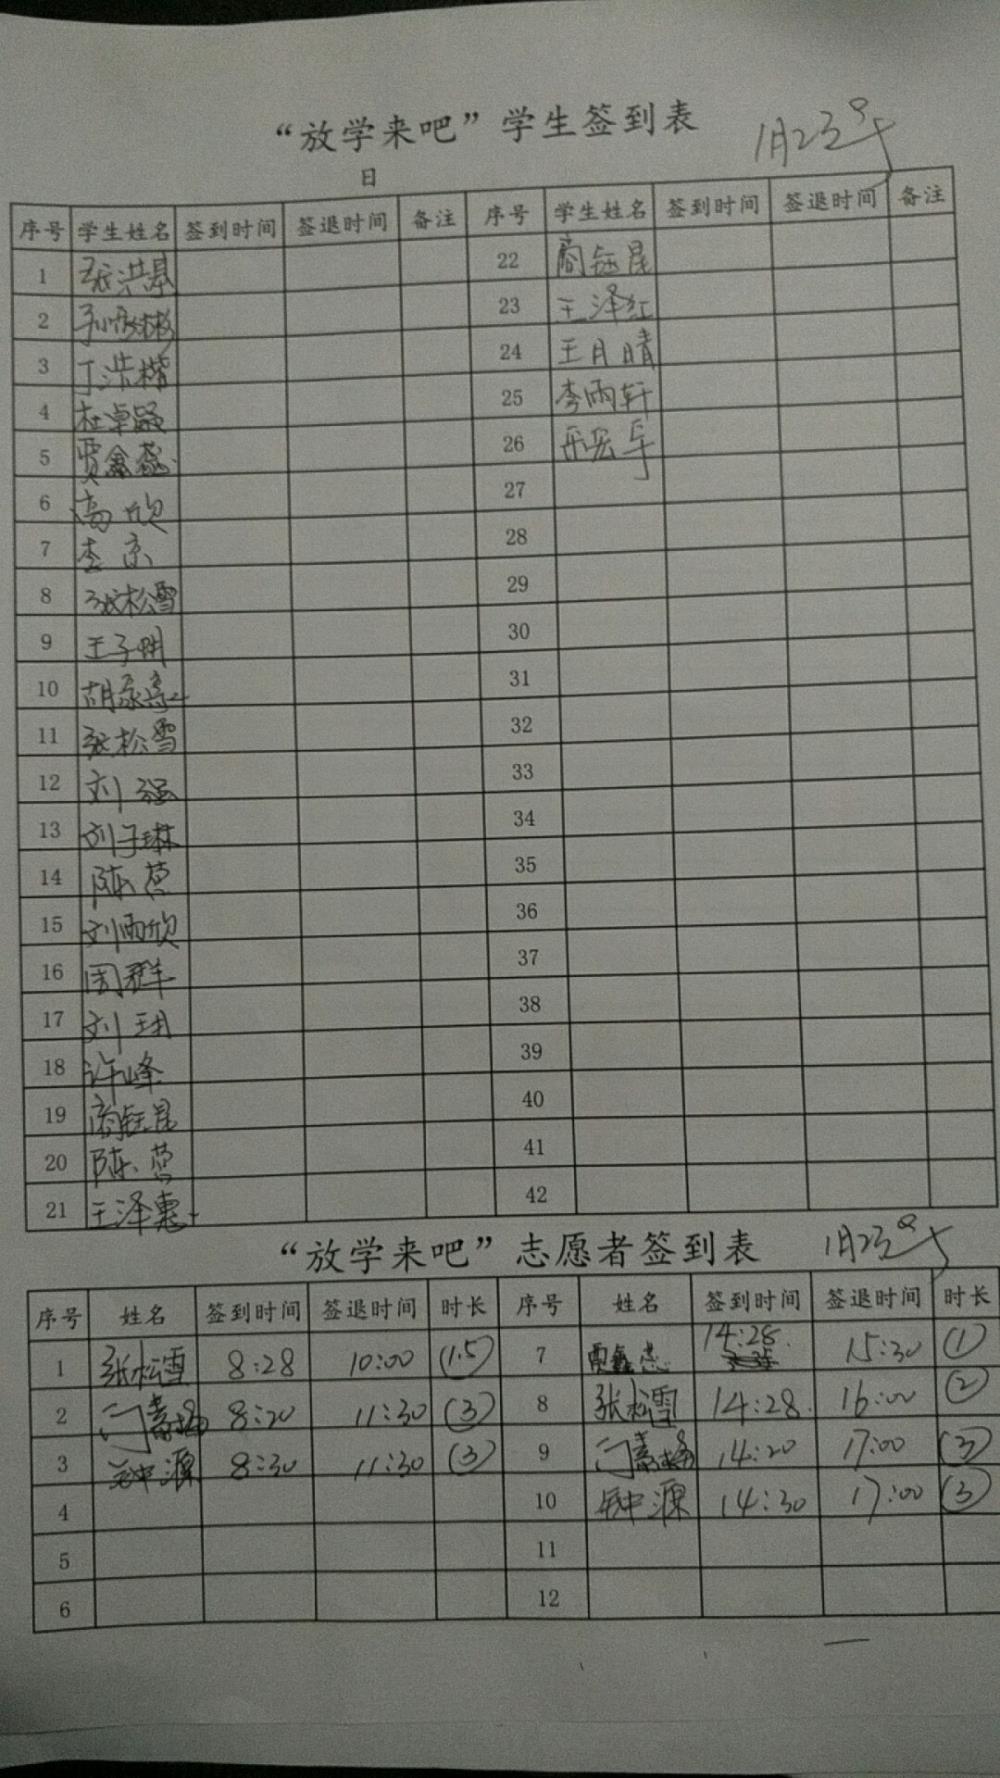 “放学来吧”学生签到表
1月23号
日
序号 学生姓名 签到时间 签退时间 备注 序号 学生姓名 签到时间 签退时间 备注
1 张洪 22 商钰昆
2 孙 23 王泽红
3 丁浩楷 24 王月晴
4 杜卓颖 25 李雨轩
5 贾鑫蕊 26
6 高欣 27
7 李京 28
8 张松雪 29
9 王子明 30
10 胡 31
11 张松雪 32
12 刘强 33
13 刘子琳 34
14 陈 35
15 刘雨欣 36
16 周群 37
17 刘 38
18 许峰 39
19 商钰昆 40
20 陈 41
21 王泽惠 42
“放学来吧”志愿者签到表 1月23号
序号 姓名 签到时间 签退时间 时长 序号 姓名 签到时间 签退时间 时长
1 张松雪 8:28 10:00 (1.5) 7 贾鑫蕊 14:28 15:30 (1)
2 闫素梅 8:20 11:30 (3) 8 张松雪 14:28 16:00 (2)
3 钟源 8:30 11:30 (3) 9 闫素梅 14:20 17:00 (3)
4 10 钟源 14:30 17:00 (3)
5 11
6 12